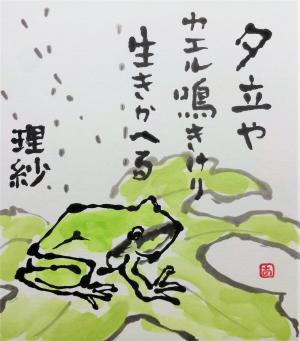 夕立や
カエル鳴きけり
生きかへる
理紗